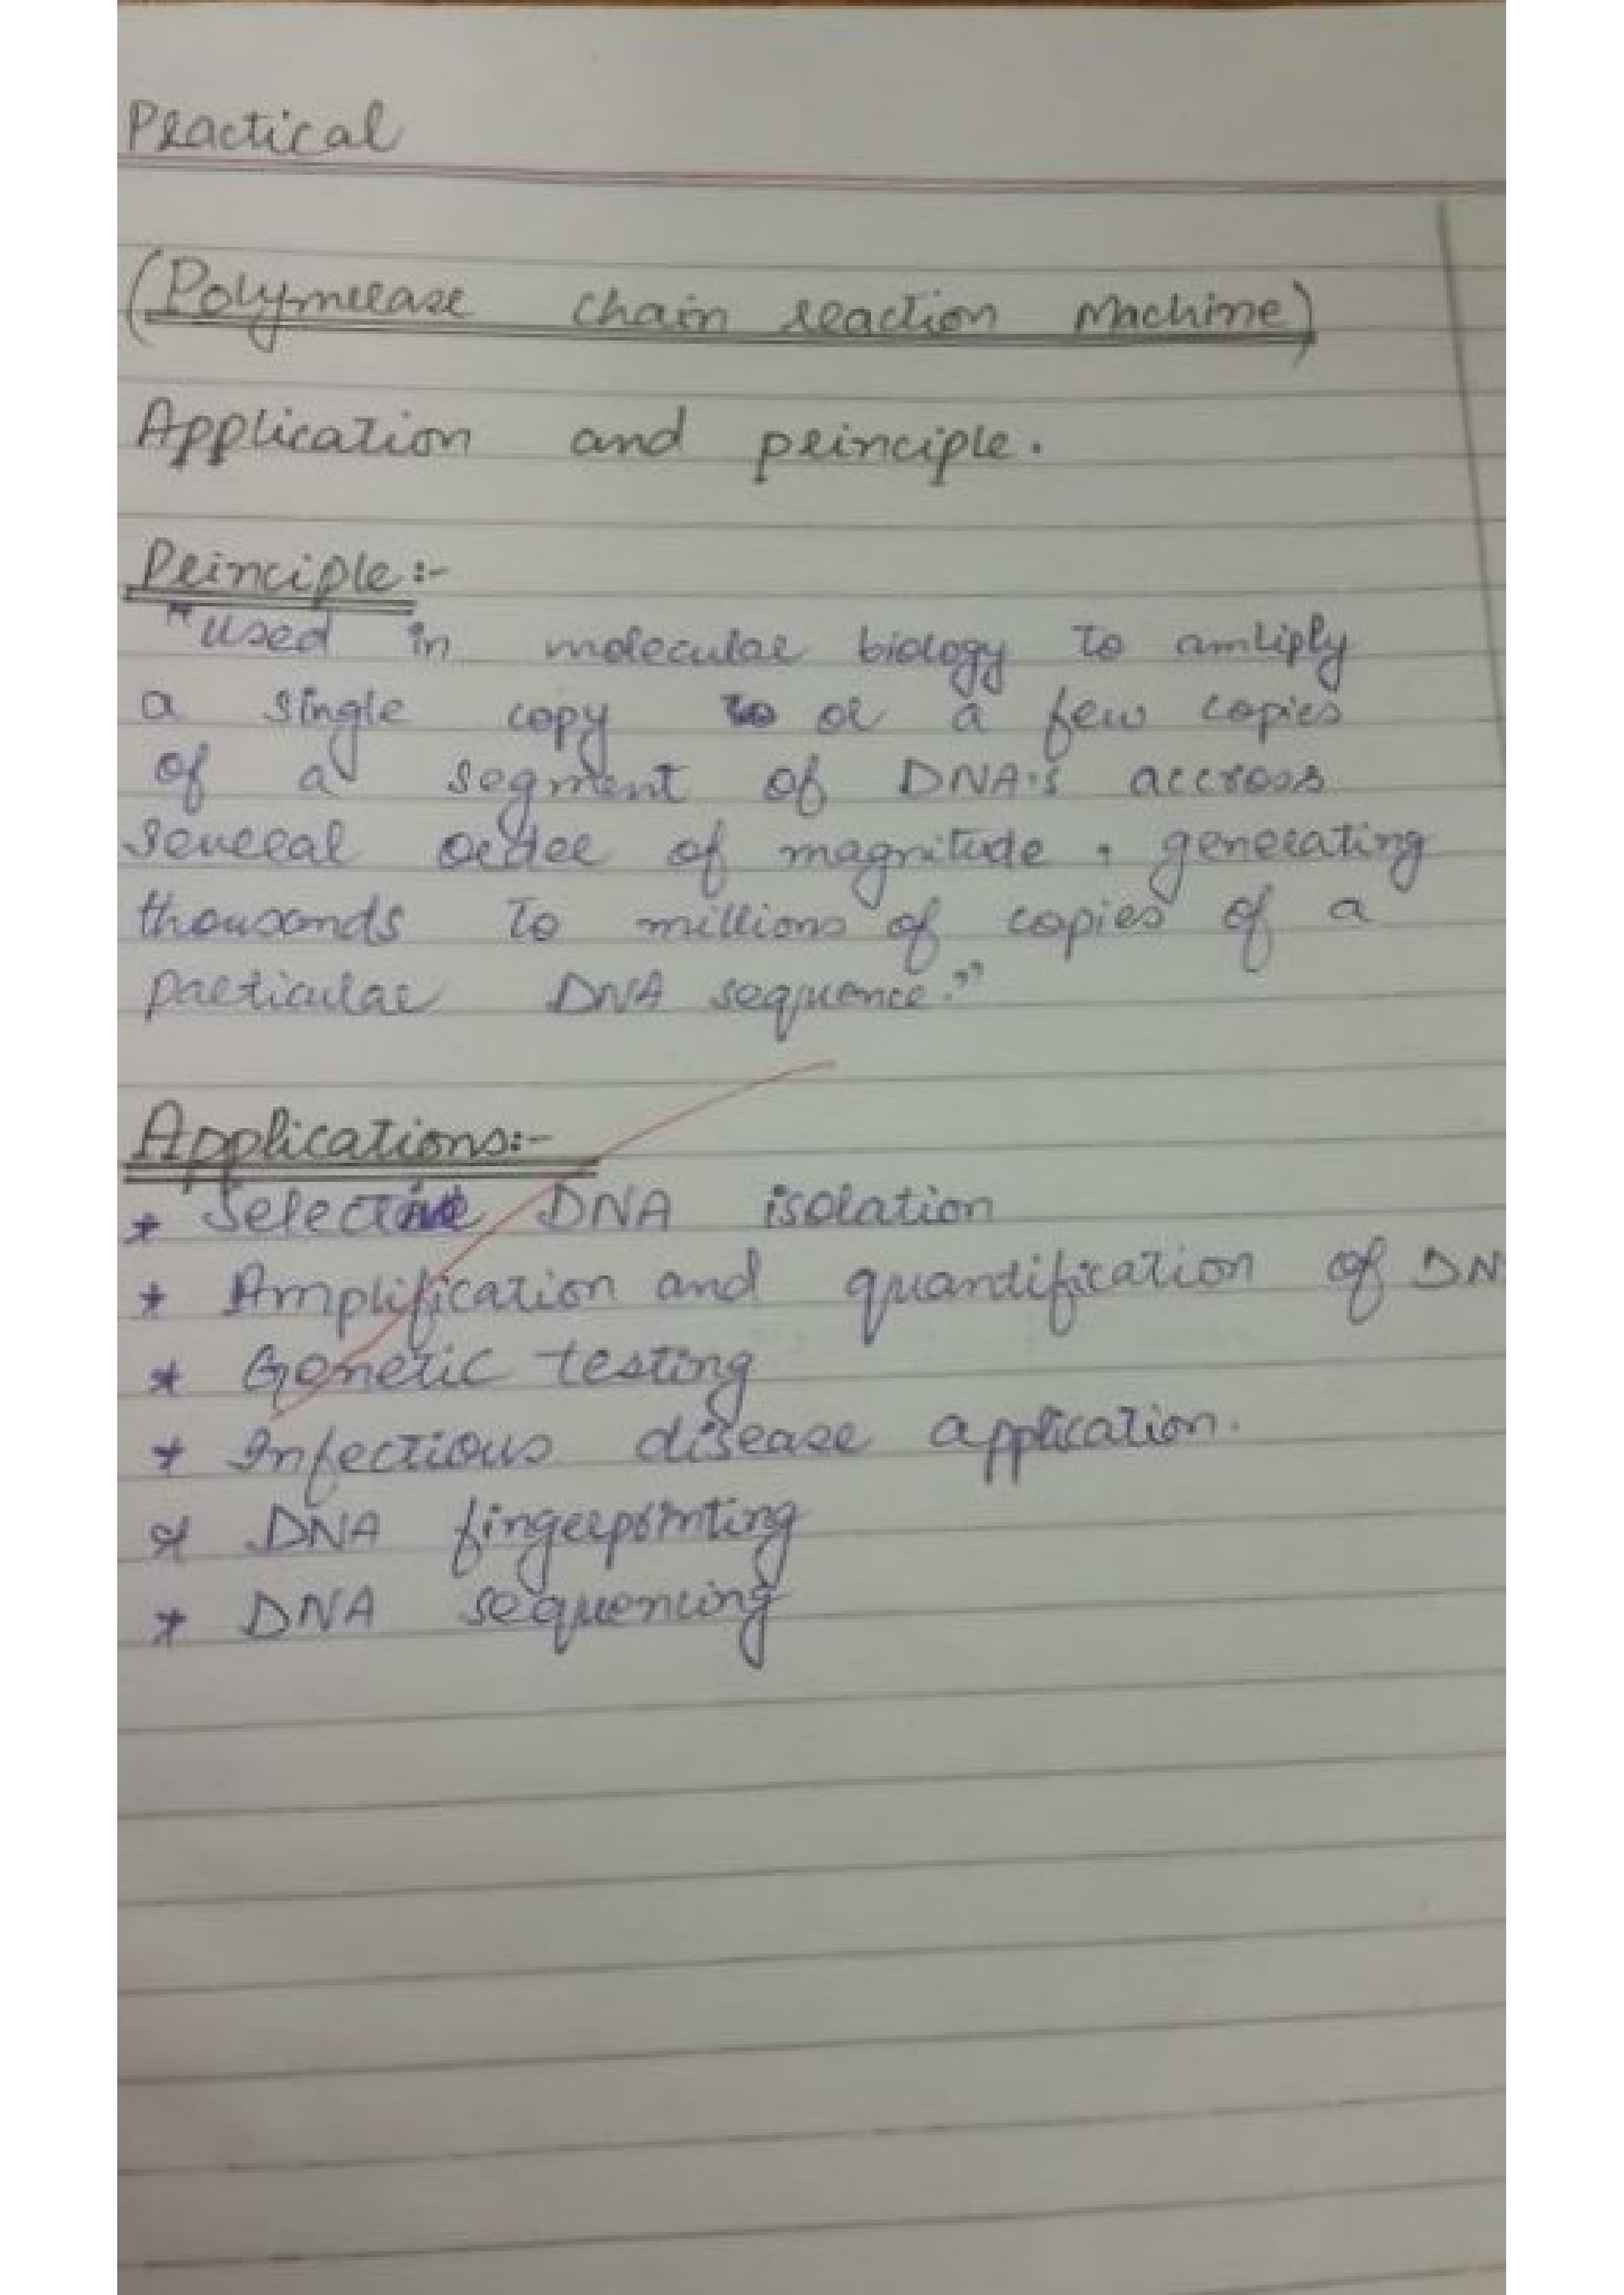 Practical
(Polymerase chain reaction Machine)
Application and principle.
Principle:-
"used in molecular biology to amliply
a single copy to or a few copies
of a segment of DNA's accross
several order of magnitude, generating
thousands to millions of copies of a
particular DNA sequence."
Applications:-
* Selective DNA isolation
* Amplification and quantification of DN
* Genetic testing
* Infectious disease application.
* DNA fingerprinting
* DNA sequencing